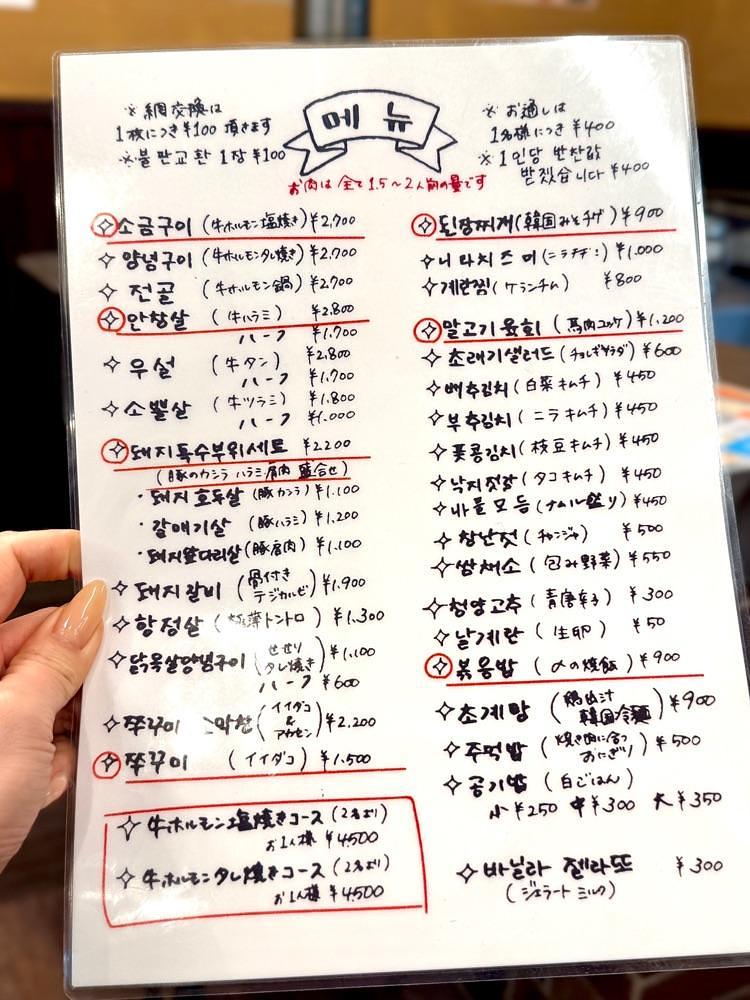 ※網交換は
1枚につき¥100 頂きます
※불판교환 1장 ¥100
메뉴
※お通しは
1名様につき ¥400
※1인당 반찬값
받겠습니다 ¥400
お肉は全て1.5～2人前の量です
소금구이 (牛ホルモン塩焼き) ¥2,700
양념구이 (牛ホルモンタレ焼き) ¥2,700
전골 (牛ホルモン鍋) ¥2,700
안창살 (牛ハラミ) ¥2,800
ハーフ ¥1,700
우설 (牛タン) ¥2,800
ハーフ ¥1,700
소뽈살 (牛ツラミ) ¥1,800
ハーフ ¥1,000
돼지특수부위세트 ¥2,200
(豚のカシラ ハラミ 肩肉 盛合せ)
・돼지호두살 (豚カシラ) ¥1,100
・갈매기살 (豚ハラミ) ¥1,200
・돼지앞다리살 (豚肩肉) ¥1,100
돼지갈비 (骨付きデジカルビ) ¥1,900
항정살 (極薄トントロ) ¥1,300
닭목살양념구이 (せせりタレ焼き) ¥1,100
ハーフ ¥600
쭈꾸미 (イイダコ&アカセン) ¥2,200
쭈꾸미 (イイダコ) ¥1,500
牛ホルモン塩焼きコース (2名より)
お1人様 ¥4,500
牛ホルモンタレ焼きコース (2名より)
お1人様 ¥4,500
된장찌개 (韓国みそチゲ) ¥900
니라치즈미 (ニラチヂミ) ¥1,000
계란찜 (ケランチム) ¥800
말고기육회 (馬肉ユッケ) ¥1,200
초래기샐러드 (チョレギサラダ) ¥600
배추김치 (白菜キムチ) ¥450
부추김치 (ニラキムチ) ¥450
풋콩김치 (枝豆キムチ) ¥450
낙지젓갈 (タコキムチ) ¥450
나물모듬 (ナムル盛り) ¥450
창난젓 (チャンジャ) ¥500
쌈채소 (包み野菜) ¥550
청양고추 (青唐辛子) ¥300
날계란 (生卵) ¥50
볶음밥 (〆の焼飯) ¥900
초계망 (鶏出汁韓国冷麺) ¥900
주먹밥 (焼き肉に合うおにぎり) ¥500
공기밥 (白ごはん)
小¥250 中¥300 大¥350
바닐라 젤라또 ¥300
(ジェラート ミルク)